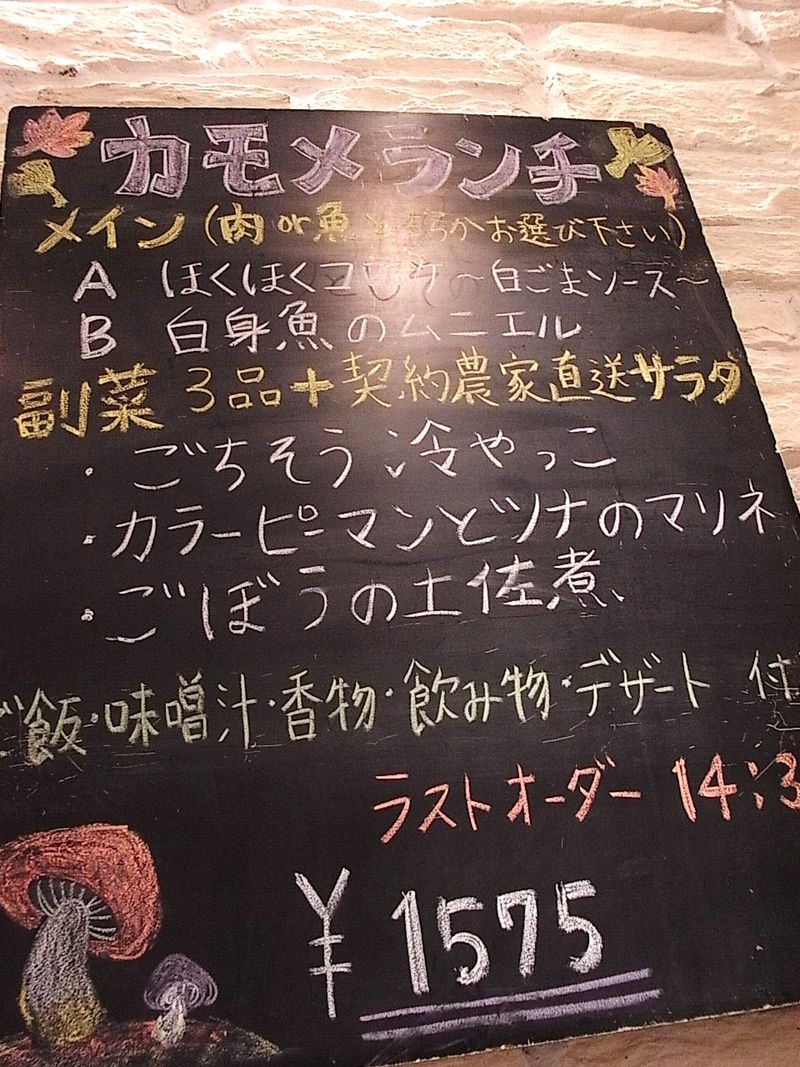 カモメランチ
メイン(肉or魚どちらかお選び下さい)
A ほくほくコロッケ〜白ごまソース〜
B 白身魚のムニエル
副菜 3品+契約農家直送サラダ
・ごちそう冷やっこ
・カラーピーマンとツナのマリネ
・ごぼうの土佐煮
ご飯・味噌汁・香物・飲み物・デザート 付
ラストオーダー 14:3
¥1575